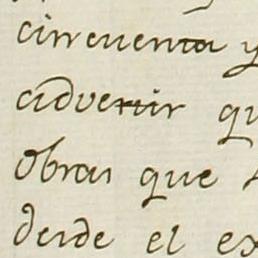 cinrcuenta y
advertir qu
obras que
desde el ex